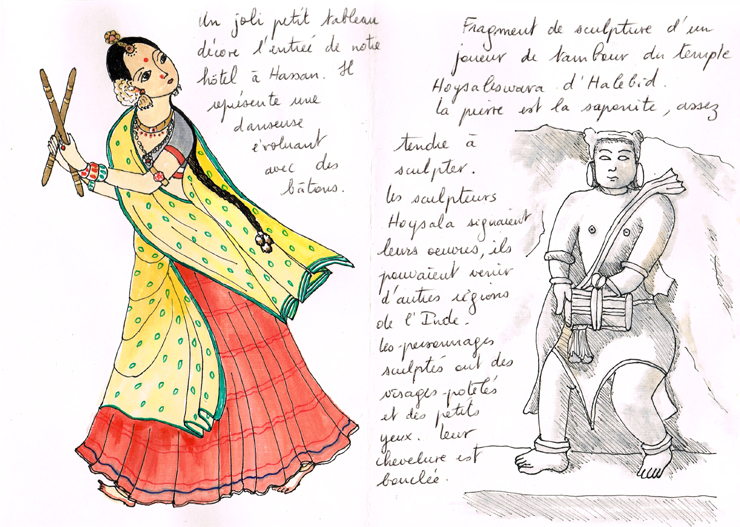 Un joli petit tableau
décore l'entrée de notre
hôtel à Hassan. Il
représente une
danseuse
évoluant
avec des
bâtons.
Fragment de sculpture d'un
joueur de tambour du temple
Hoysaleswara d'Halebid.
La pierre est la saponite, assez
tendre à
sculpter.
Les sculpteurs
Hoysala signaient
leurs oeuvres, ils
pouvaient venir
d'autres régions
de l'Inde.
Les personnages
sculptés ont des
visages potelés
et des petits
yeux. Leur
chevelure est
bouclée.